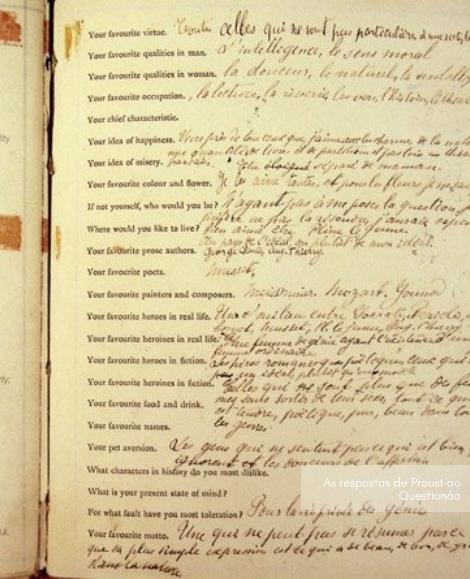 Your favourite virtue. Toutes celles qui ne sont pas particulières à une secte, les
Your favourite qualities in man. L'intelligence, le sens moral
Your favourite qualities in woman. la douceur, le naturel, l'intelli
Your favourite occupation. la lecture, la rêverie, les vers, l'histoire, le théâ
Your chief characteristic. ?
Your idea of happiness. Vivre près de tous ceux que j'aime avec les charmes de la nature
une quantité de livres et de partitions et pas loin un théâtre
Your idea of misery. français. Etre éloigné séparé de maman.
Your favourite colour and flower. Je les aime toutes, et pour les fleurs je ne sais
If not yourself, who would you be? N'ayant pas à me poser la question, je
préfère ne pas la résoudre, j'aurais cependant
Where would you like to live? bien aimé être Pline le jeune.
Au pays de l'idéal, ou plutôt de mon idéal.
Your favourite prose authors. George Sand, Aug. Thierry.
Your favourite poets. Musset.
Your favourite painters and composers. Meissonier. Mozart. Gounod
Your favourite heroes in real life. Un milieu entre Socrate, Périclès,
Mahomet, Musset, Pline le jeune, Aug. Thierry
Your favourite heroines in real life. Une femme de génie ayant l'existence d'une
femme ordinaire
Your favourite heroes in fiction. Les héros romanesques poétiques, ceux qui
sont un idéal plutôt qu'un modèle
Your favourite heroines in fiction. Celles qui sont plus que des fe
mmes sans sortir de leur sexe, tout ce qui
Your favourite food and drink. est tendre, poétique, pur, beau dans tous
les genres.
Your favourite names.
Your pet aversion. Les gens qui ne sentent pas ce qui est bien,
ignorent les douceurs de l'affection
What characters in history do you most dislike.
What is your present state of mind?
For what fault have you most toleration? Pour la vie privée des génies
Your favourite motto. Une qui ne peut pas se résumer parce
que sa plus simple expression est ce qui a de beau, de bon, de gr
dans la nature
As respostas de Proust ao
Questionáo